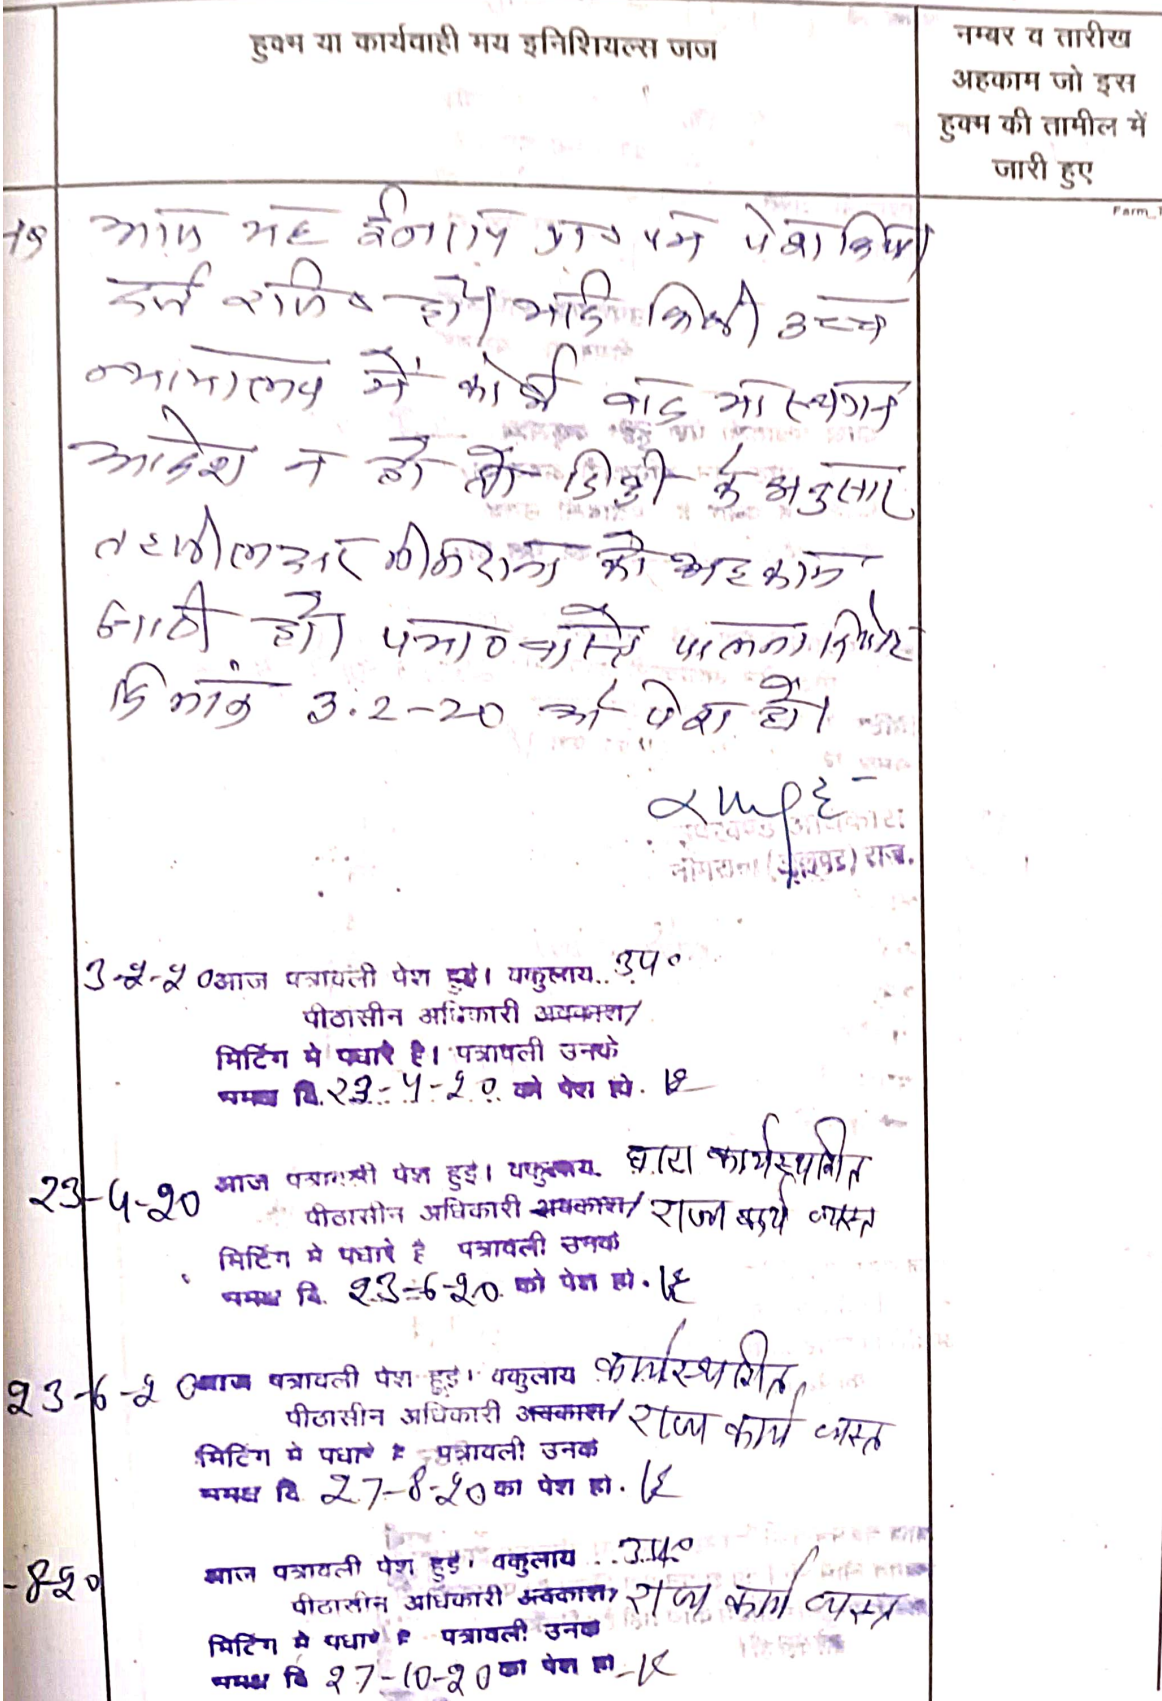 हुक्म या कार्यवाही मय इनिशियल्स जज
नम्बर व तारीख
अहकाम जो इस
हुक्म की तामील में
जारी हुए
Farm_
19
आज यह ईजराय प्रा० पत्र पेश किया।
दर्ज रजि० हो। यदि किसी उच्च
न्यायालय में कोई वाद या स्थगन
आदेश न हो तो डिक्री के अनुसार
तहसीलदार नीमराना को अहकाम
जारी हो। पत्रा० वास्ते पालना रिपोर्ट
दिनांक 3.2-20 को पेश हो।
उपखण्ड अधिकारी
नीमराना (अलवर) राज.
3-2-20 आज पत्रावली पेश हुई। वकुलाय.. उप०
पीठासीन अधिकारी अवकाश/
मिटिंग मे पधारे है। पत्रावली उनके
समक्ष दि. 23-4-20 को पेश हो.
23-4-20 आज पत्रावली पेश हुई। वकुलाय. द्वारा कार्यस्थगित
पीठासीन अधिकारी अवकाश/ राज्य कार्य व्यस्त
मिटिंग मे पधारे है पत्रावली उनके
समक्ष दि. 23-6-20 को पेश हो.
23-6-20 आज पत्रावली पेश हुई। वकुलाय कार्यस्थगित
पीठासीन अधिकारी अवकाश/ राज्य कार्य व्यस्त
मिटिंग मे पधारे है पत्रावली उनके
समक्ष दि 27-8-20 को पेश हो.
-8-20 आज पत्रावली पेश हुई। वकुलाय ..उप०
पीठासीन अधिकारी अवकाश/ राज्य कार्य व्यस्त
मिटिंग मे पधारे है पत्रावली उनके
समक्ष दि 27-10-20 को पेश हो